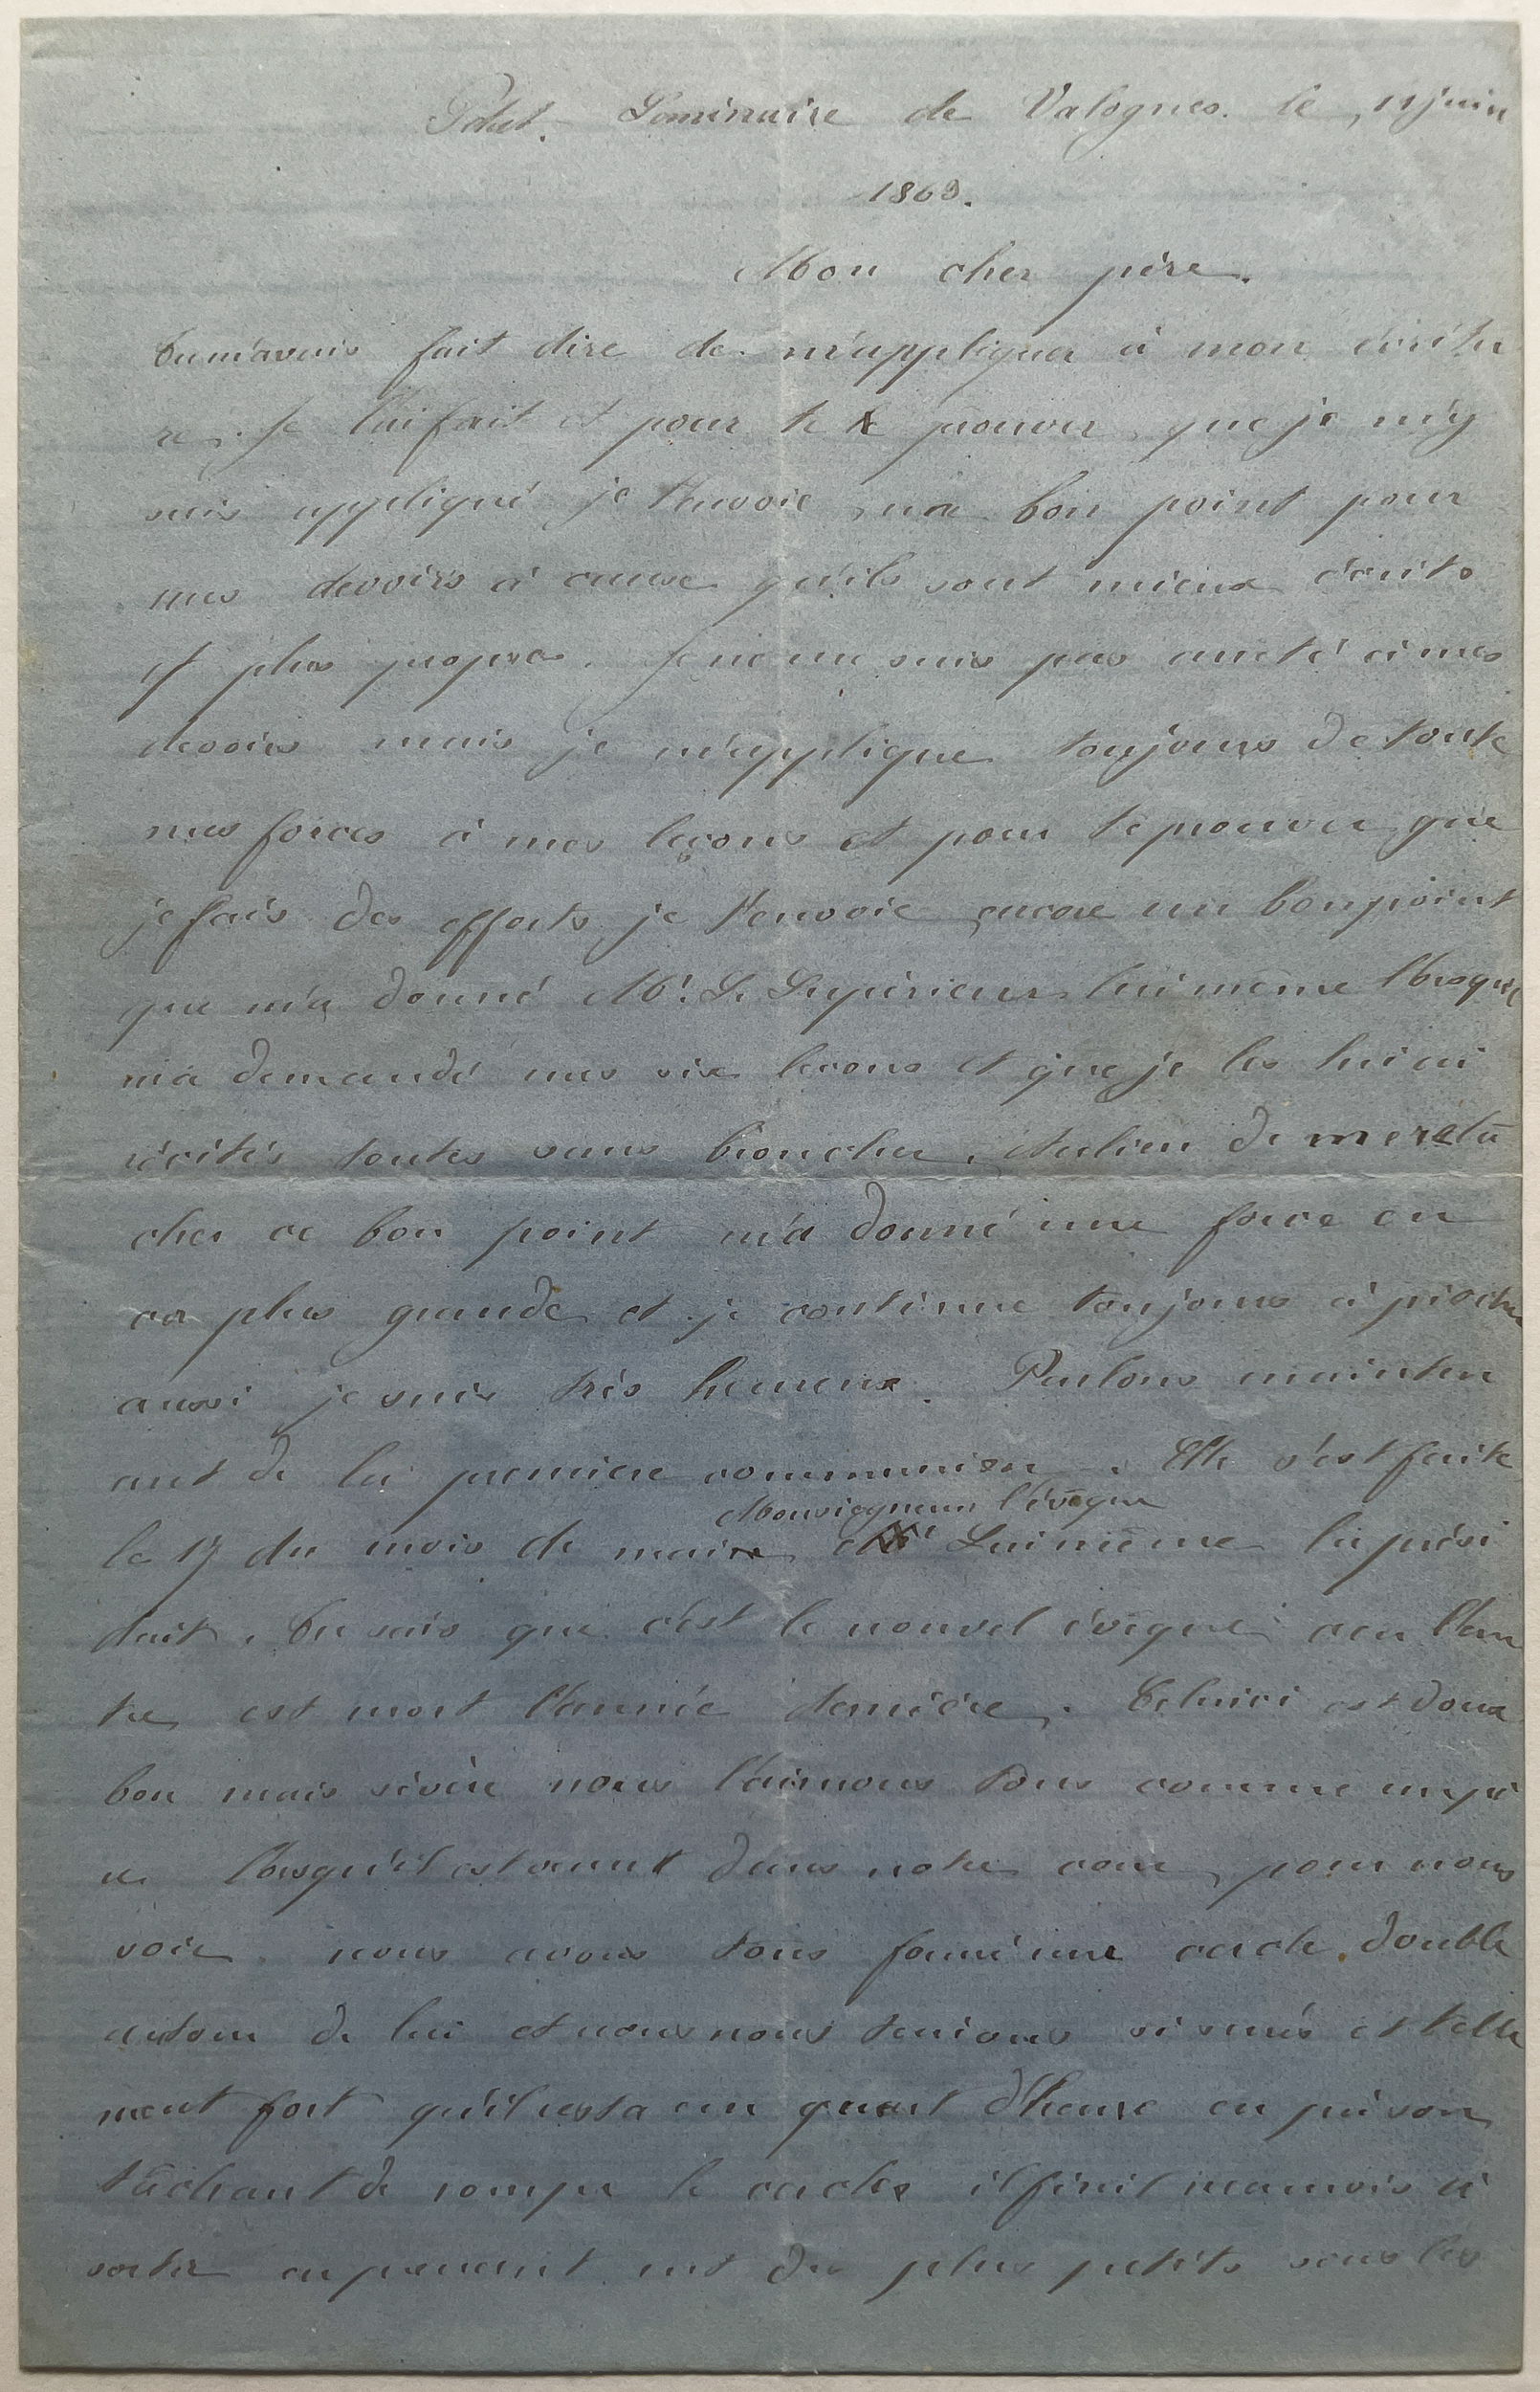 Petit Séminaire de Valognes. le, 11 juin
1863.
Mon cher père.
Tu m'avais fait dire de m'appliquer à mon écritu
re, je l'ai fait et pour te prouver que je m'y
suis appliqué je t'envoie un bon point pour
mes devoirs à cause qu'ils sont mieux écrits
et plus propres. Je ne me suis pas arreté à mes
devoirs mais je m'applique toujours de toute
mes forces à mes leçons et pour te prouver que
je fais des efforts je t'envoie encore un bon point
que m'a donné Mr. Le Supérieur lui même lorsqu'il
m'a demandé mes six lecons et que je les lui ai
récités toutes sans broncher. Au lieu de me relâ
cher ce bon point m'a donné une force en
cor plus grande et je continue toujours à piocher
aussi je suis très heureux. Parlons mainten
ant de la premiere communion. Elle s'est faite
Monseigneur l'évêque
le 17 du mois de mai Lui même la prési
dait. Tu sais que c'est le nouvel évêque car l'au
tre est mort l'année dernière. Celui ci est doux
bon mais sévère nous l'aimons tous comme un pè
re lorsqu'il est venut dans notre cour, pour nous
voir nous avons tous formé une cercle double
autour de lui et nous nous tenions si serrés et telle
ment fort qu'il resta un quart d'heure en prison
tâchant de rompre le cercle il finit à
sortir en prenant un des plus petits sous les